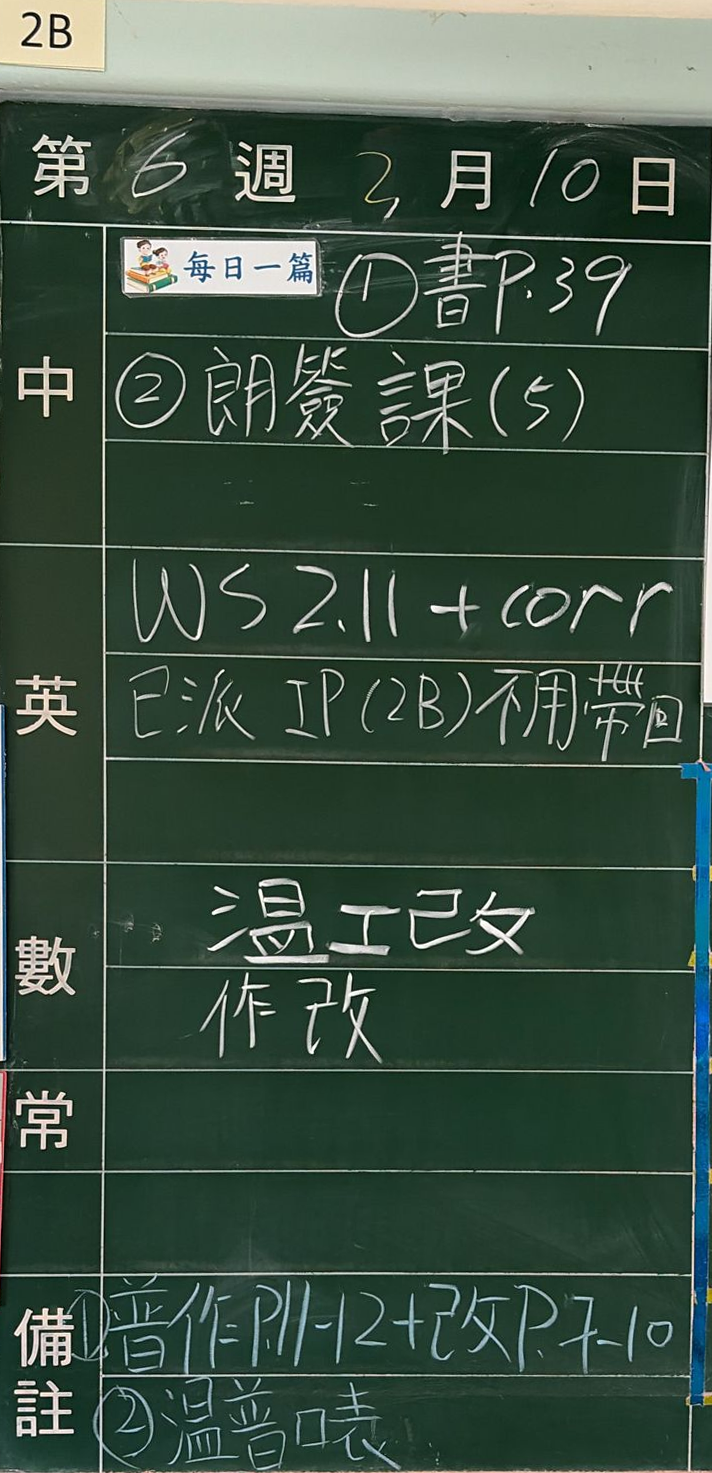 2B
第 6 週 2 月 10 日
中
每日一篇 ①書P.39
②朗簽 課(5)
英
WS 2.11 + corr
已派 IP(2B)不用帶回
數
温工改
作改
常
備註
①普作P.11-12+改P.7-10
②温普口表